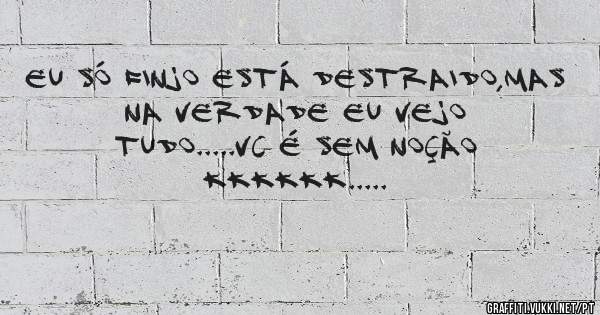 EU SÓ FINJO ESTÁ DESTRAIDO,MAS
NA VERDADE EU VEJO
TUDO.....VC É SEM NOÇÃO
KKKKKK.....
GRAFFITI.VUKKI.NET/PT